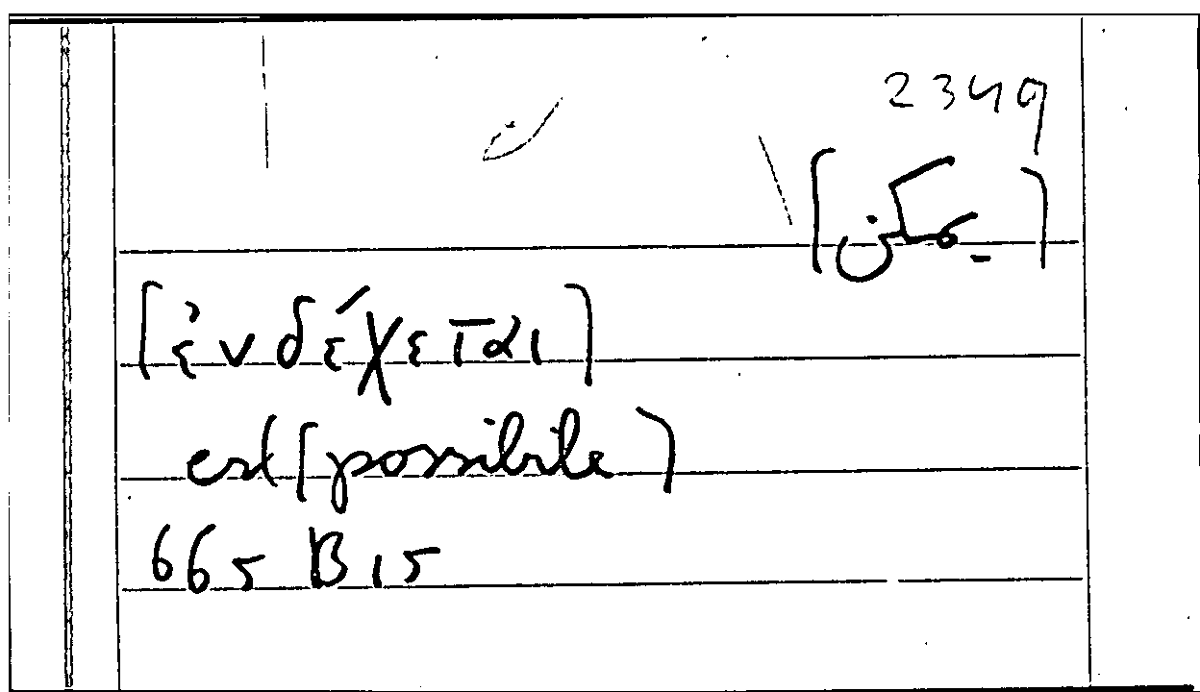 2349
[يمكن]
[ἐνδέχεται]
est [possibile]
665 B 15